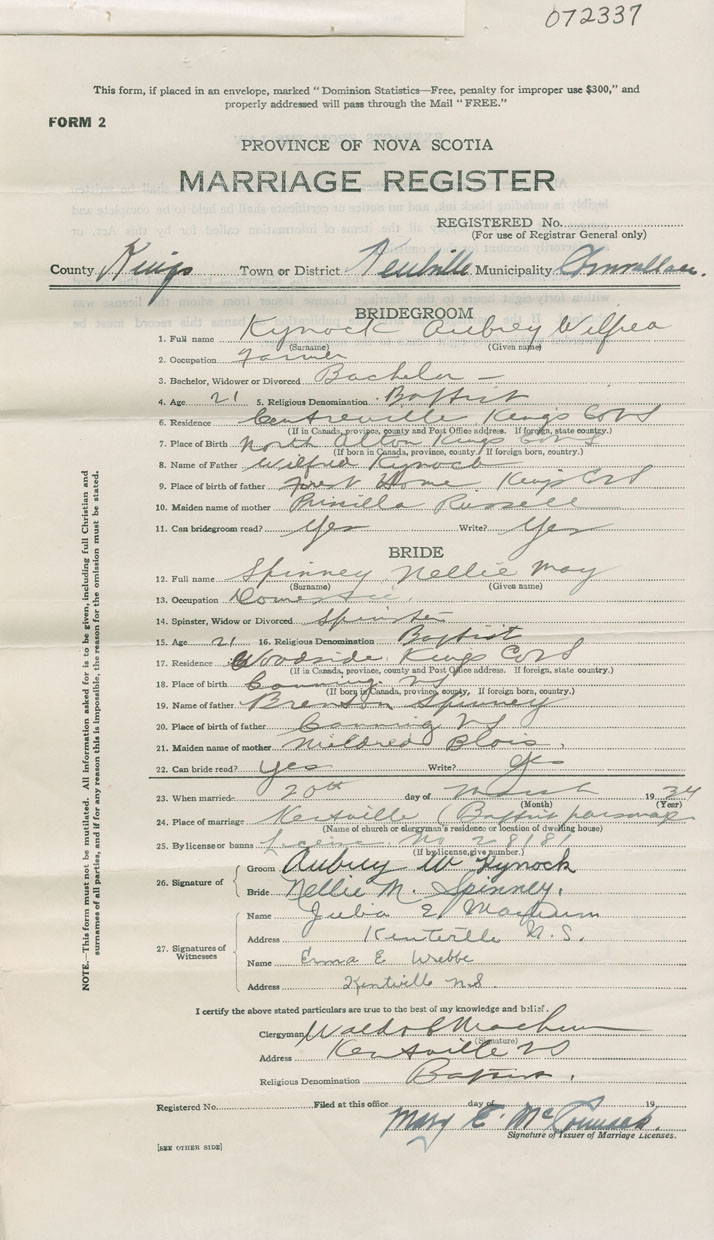 072337
This form, if placed in an envelope, marked "Dominion Statistics—Free, penalty for improper use $300," and
properly addressed will pass through the Mail "FREE."
FORM 2
PROVINCE OF NOVA SCOTIA
MARRIAGE REGISTER
REGISTERED No.
(For use of Registrar General only)
County Kings Town or District Kentville Municipality Cornwallis.
BRIDEGROOM
1. Full name Kynock Aubrey Wilfred
(Surname) (Given name)
2. Occupation Farmer
3. Bachelor, Widower or Divorced Bachelor –
4. Age 21 5. Religious Denomination Baptist
6. Residence Centreville Kings Co NS
(If in Canada, province, county and Post Office address. If foreign, state country.)
7. Place of Birth North Alton Kings Co NS
(If born in Canada, province, county. If foreign born, country.)
8. Name of Father Wilfred Kynock
9. Place of birth of father Forest Home Kings Co NS
10. Maiden name of mother Priscilla Russell
11. Can bridegroom read? Yes Write? Yes
BRIDE
12. Full name Spinney Nellie May
(Surname) (Given name)
13. Occupation Domestic
14. Spinster, Widow or Divorced Spinster
15. Age 21 16. Religious Denomination Baptist
17. Residence Woodside Kings Co NS
(If in Canada, province, county and Post Office address. If foreign, state country.)
18. Place of birth Canning NS
(If born in Canada, province, county, If foreign born, country.)
19. Name of father Brenson Spinney
20. Place of birth of father Canning NS
21. Maiden name of mother Mildred Blois.
22. Can bride read? Yes Write? Yes
23. When married 20th day of March 1934
(Month) (Year)
24. Place of marriage Kentville (Baptist parsonage
(Name of church or clergyman's residence or location of dwelling house)
25. By license or banns License No 28181
(If by license, give number.)
26. Signature of
Groom Aubrey W Kynock
Bride Nellie M. Spinney.
27. Signatures of Witnesses
Name Julia E
Address Kentville N.S.
Name Erma E Webbe
Address Kentville N.S
I certify the above stated particulars are true to the best of my knowledge and belief.
Clergyman
(Signature)
Address Kentville NS
Religious Denomination Baptist.
Registered No. Filed at this office day of 19
Mary E. Mc
Signature of Issuer of Marriage Licenses.
[SEE OTHER SIDE]
NOTE.—This form must not be mutilated. All information asked for is to be given, including full Christian and
surnames of all parties, and if for any reason this is impossible, the reason for the omission must be stated.